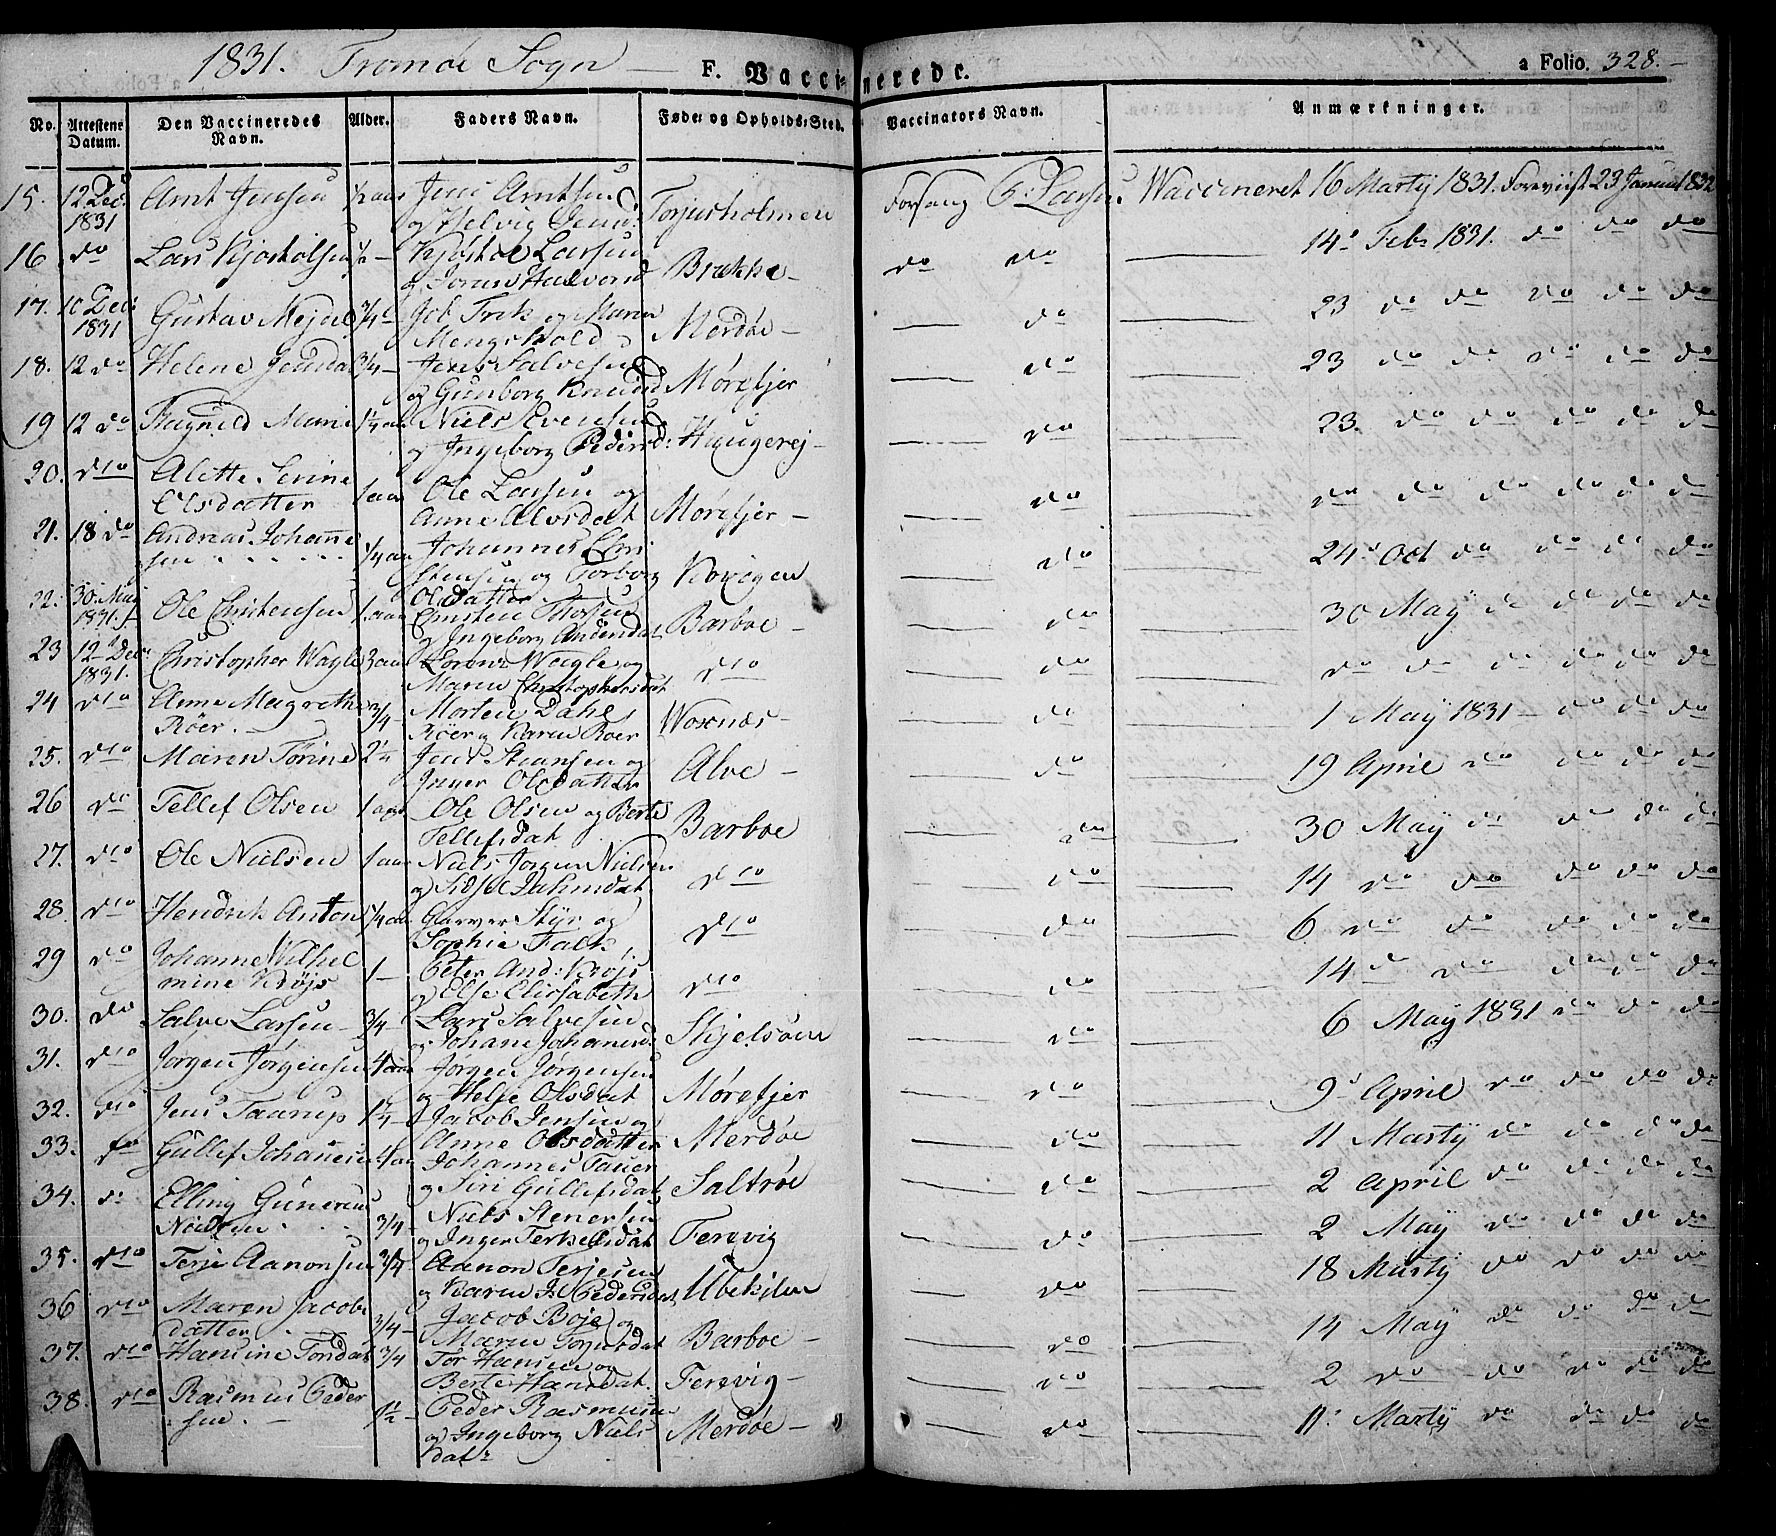 1831. Tromøe Sogn — F. Vaccineredc. a Folio. 328.
No. Attestens Datum. Den Vaccineredes Navn. Alder. Faders Navn. Føde- og Opholds-Sted. Vaccinators Navn. Anmærkninger.
15. 12 Dec. 1831 Arnt Jensen ½ aar Jens Arntsen og Helvig Torjusholmen Forsang C. Larsen Waccineret 16 Martÿ 1831. Foreviist 23 Januar 1832
16 do Lars Kjøstolsen Kjøstol Larsen og Joran Halvorsd Brække do do 14 Feb 1831. do do do
17. 10 Dec: 1831 Gustav Mejdel 3/4 Job Trik og Maren Mengshold Merdøe do 23 do do do do do
18. 12 do Helene Jensda 3/4 Jens Salvesen og Gunborg Knudsd Mørefjer do 23 do do do do do
19 12 do Ragnild Marie 1¼ aar Niels Evensen og Ingeborg Pedersd: Haugerej do 23. do do do do do
20. do Alette Serine Olsdatter 1 aar Ole Larsen og Anne Alvsdat Mørefjer do do do do do do do
21. 18 do Andreas Johannesen ¼ aar Johannes Christensen og Torborg Olsdatter do 24 Oct do do do do
22. 30 Maj 1831 Ole Christensen 1 aar Christen Thorsen og Ingeborg Andersdat Barboe do 30 Maÿ do do do do
23 12 Dec: 1831. Christopher Wagle 3 aar Lorens Wagle og Maren Christophersdat do do do do do do do do
24 do Anne Magrethe Röer. 3/4 Morten Dahl Röer og Karen Roer Woxnæs do 1 Maÿ 1831 do do do
25. do Maren Tørine 2½ Jens Steensen og Inger Olsdatter Alve do 19 April do do do do
26 do Tellef Olsen 1 aar Ole Olsen og Berte Tellefsdat Barboe do 30 Maÿ do do do do
27. do Ole Nielsen 1 aar Niels Jørgen Nielsen og Sidsel do do 14 do do do do do
28. do Hendrik Anton ¼ aar Garver Styr og Sophie Falk do do 6 do do do do do
29 do Johanne Wilhelmine Krøjs 1 Peter And: Krøjs og Else Elisabeth do do 14 do do do do do
30. do Salve Larsen 3/4 Lars Salvesen og Johane Johanesd: Skjelsöen do 6 Maÿ 1831 do do do
31. do Jørgen Jørgensen 4 aar Jørgen Jørgensen og Helje Olsdat Mørefjer do 9 April do do do do
32. do Jens Taarup 1½ Jacob Jensen og Anne Olsdatter Merdøe do 11 Martÿ do do do do
33. do Gullef Johanesen 4 aar Johannes Tauer og Siri Gullefsdat Saltrøe do 2 April do do do do
34. do Elling Gunerius Nielsen 3/4 Niels Stenersen og Inger Terkelsdat Ferevig do 2 Maÿ do do do do
35. do Terje Aanonsen 3/4 Aanon Terjesen og Karen Pedersdat Ubekilen do 18 Martÿ do do do do
36 do Maren Jacobsdatter 3/4 Jacob Boje og Maren Torjusdat Barboe do 14 Maÿ do do do do
37. do Hansine Torsdat 3/4 Tor Hansen og Berte Hansdat. Ferevig do 2 do do do do do
38. do Rasmus Pedersen. 1½ Peder Rasmussen og Ingeborg Nielsdatr Merdøe do 11 Martÿ do do do do